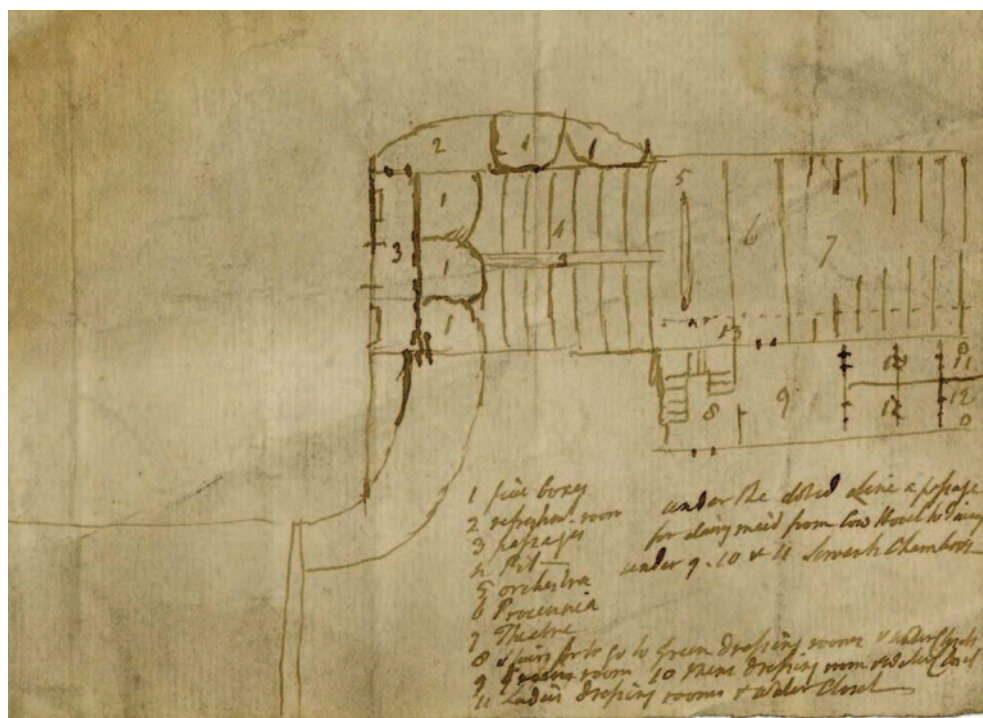 2 1 1
1 5
4 6
3 7
1 3
1 13
10 11
8 9 12 12
1 five boxes
2 refreshm. room
3 passages
4 Pit
5 orchestra
6 Procennia
7 Theatre
8 Stairs for to go to Green dressing rooms &
9 Greens room 10 Mens dressing room & water Closet
11 Ladies dressing rooms & water Closet
under the doted line a passage
for dairy maid from Cow Hovel to dairy
under 9. 10 & 11 Servants Chambers